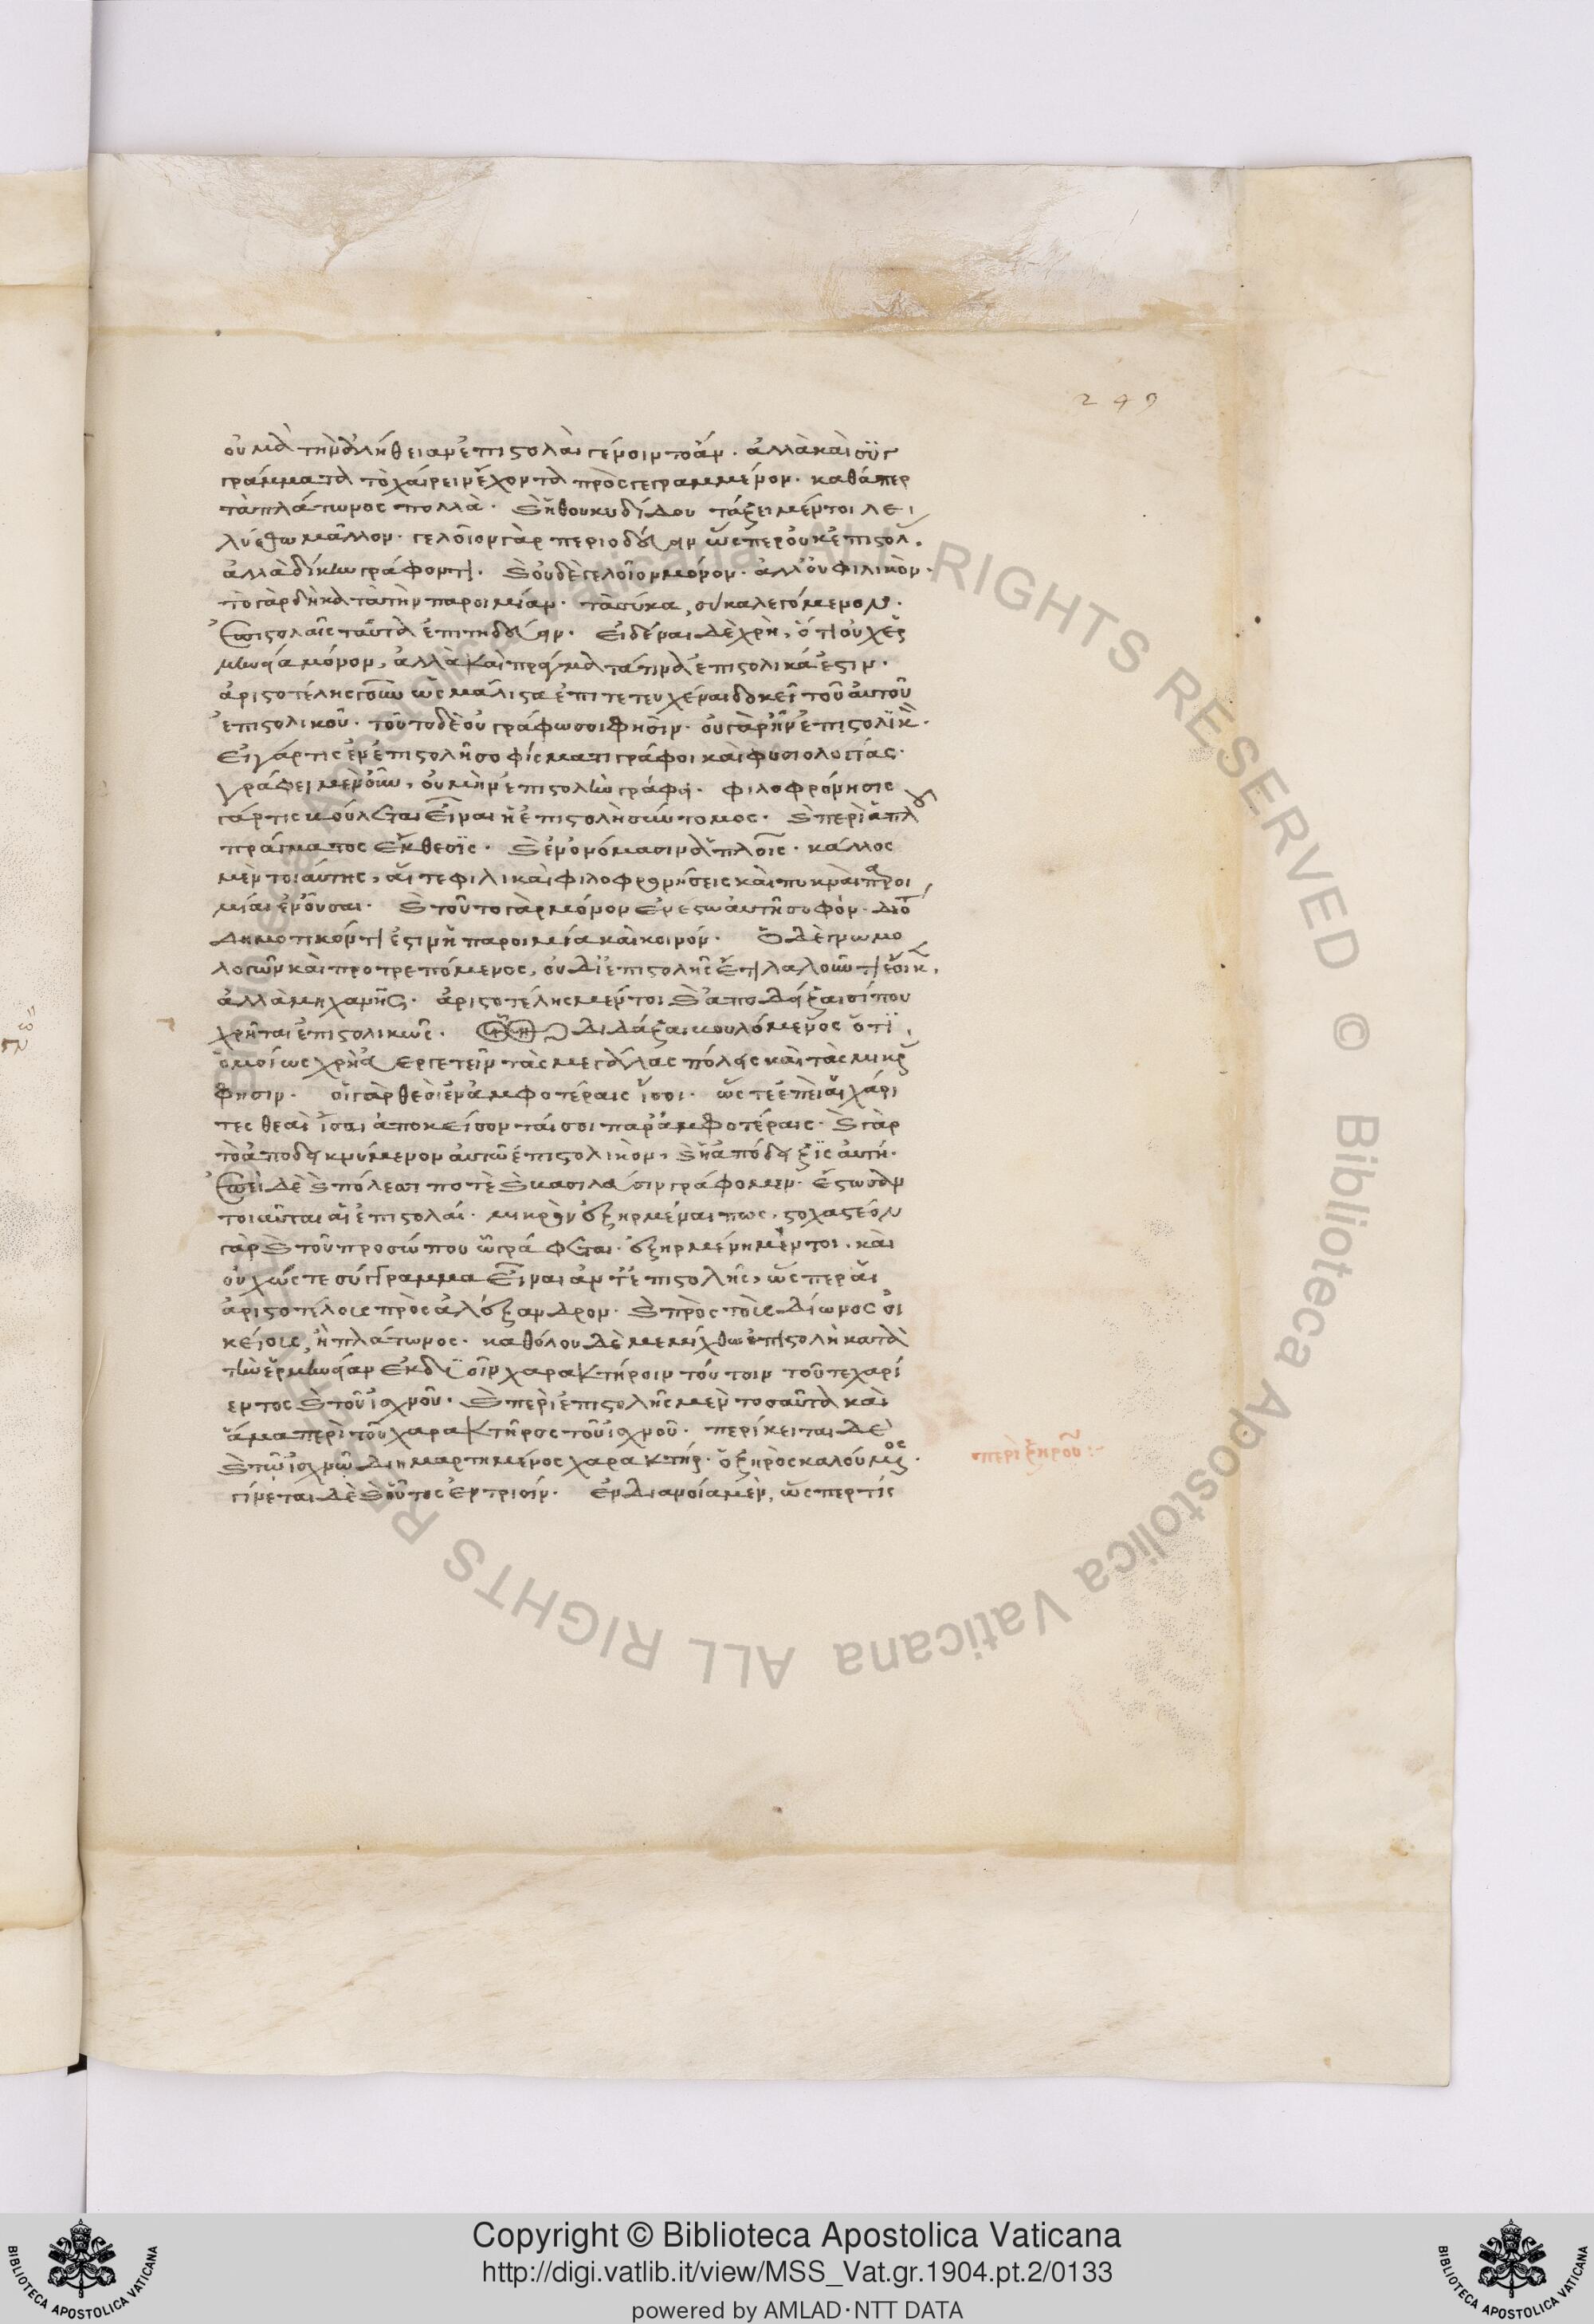 249
οὐ μὰ τὴν ἀλήθειαν ἐπιστολαὶ γένοιντο ἄν. ἀλλὰ καὶ συγ
γράμματα τὸ χαίρειν ἔχοντα προσγεγραμμένον. καθάπερ
τὰ πλάτωνος πολλὰ. καὶ ἡ θουκυδίδου τάξει μέντοι λε
λύσθω μᾶλλον. γελοῖον γὰρ περιοδεύειν ὥσπερ οὐκ ἐπιστολ.
ἀλλὰ δίκην γράφοντι. καὶ οὐδὲ γελοῖον μόνον. ἀλλ' οὐ φιλικὸν.
τὸ γὰρ δὴ κατὰ τὴν παροιμίαν. τὰ σῦκα, συκα λεγόμενον.
ἐπιστολαῖς ταῦτα ἐπιτηδεύειν. εἰδέναι δὲ χρὴ, ὅτι οὐχ ἑρ
μηνεία μόνον, ἀλλὰ καὶ πράγματά τινα ἐπιστολικά ἐστιν.
ἀριστοτέλης γοῦν ὡς μάλιστα ἐπιτετευχέναι δοκεῖ τοῦ αὐτοῦ
ἐπιστολικοῦ. τοῦτο δὲ οὐ γράφω σοι φησὶν. οὐ γὰρ ἦν ἐπιστολικὸ.
εἰ γάρ τις ἐν ἐπιστολῇ σοφίσματι γράφοι καὶ φυσιολογίας.
γράφει μὲν οὖν, οὐ μὴν ἐπιστολὴν γράφει. φιλοφρόνησις
γάρ τις βούλεται εἶναι ἡ ἐπιστολὴ σύντομος. καὶ περὶ ἁπλοῦ
πράγματος ἔκθεσις. καὶ ἐν ὀνόμασιν ἁπλοῖς. κάλλος
μέντοι αὐτῆς, αἵ τε φιλικαὶ φιλοφρονήσεις καὶ πυκναὶ παροι
μίαι ἐνοῦσαι. καὶ τοῦτο γὰρ μόνον ἐνέστω αὐτῇ σοφόν. διό
δημοτικόν τι ἐστιν ἡ παροιμία καὶ κοινόν. ὁ δὲ γνωμο
λογῶν καὶ προτρεπόμενος, οὐ δι' ἐπιστολῆς ἔτι λαλοῦντι ἔοικ.
ἀλλὰ μηχανῆς. ἀριστοτέλης μέντοι καὶ ἀποδείξεσί που
χρῆται ἐπιστολικῶς. διδάξαι βουλόμενος ὅτι,
ὁμοίως χρὴ εὐεργετεῖν τὰς μεγάλας πόλεις καὶ τὰς μικρ
φησιν. οἱ γὰρ θεοὶ ἐν ἀμφοτέραις ἴσοι. ὥστε ἐπεὶ αἱ χάρι
τες θεαὶ ἴσαι ἀποκείσονταί σοι παρ' ἀμφοτέραις. καὶ γὰρ
τὸ ἀποδεικνύμενον αὐτῶ ἐπιστολικὸν, καὶ ἡ ἀπόδειξις αὐτή.
ἐπεὶ δὲ καὶ πόλεσι ποτὲ καὶ βασιλεῦσιν γράφομεν. ἔστωσαν
τοιαῦται αἱ ἐπιστολαί. μικρὸν ἐξηρμέναι πως, στοχαστέον
γὰρ καὶ τοῦ προσώπου ᾧ γράφεται. ἐξηρμένη μέντοι. καὶ
οὐχ ὥστε σύγγραμμα εἶναι ἀντ' ἐπιστολῆς, ὥσπερ αἱ
ἀριστοτέλους πρὸς ἀλέξανδρον. καὶ πρὸς τοὺς δίωνος οἰ
κείους, ἡ πλάτωνος. καθόλου δὲ μεμίχθω ἐπιστολὴ κατὰ
τὴν ἑρμηνείαν ἐκ δυοῖν χαρακτήροιν τούτοιν τοῦ τε χαρί
εντος καὶ τοῦ ἰσχνοῦ. καὶ περὶ ἐπιστολῆς μὲν τοσαῦτα καὶ
ἅμα περὶ τοῦ χαρακτῆρος τοῦ ἰσχνοῦ. περίκειται δὲ
καὶ τῶ ἰσχνῶ διημαρτημένος χαρακτήρ. ὁ ξηρὸς καλούμενος.
γίνεται δὲ καὶ οὗτος ἐν τρισίν. ἐν διανοία μὲν, ὥσπερ τίς
περὶ ξηροῦ:~
Copyright © Biblioteca Apostolica Vaticana
http://digi.vatlib.it/view/MSS_Vat.gr.1904.pt.2/0133
powered by AMLAD·NTT DATA
BIBLIOTECA APOSTOLICA VATICANA
BIBLIOTECA APOSTOLICA VATICANA